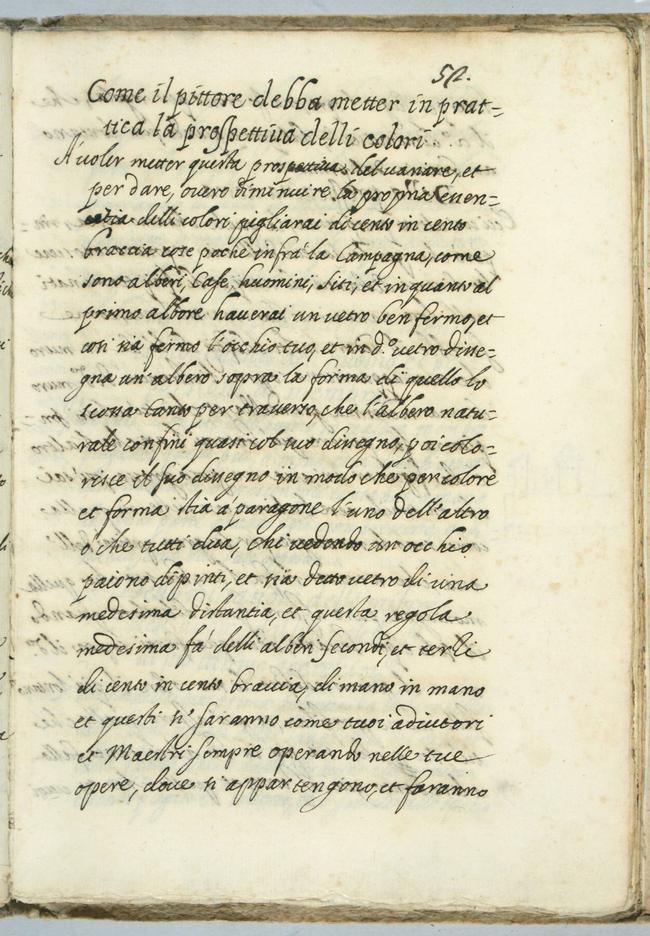 52.
Come il pittore debba metter in prat=
tica la prospettiva delli colori
A voler metter questa prospettiva del variare, et
per dare, overo diminuire la propria essen=
tia delli colori pigliarai di cento in cento
braccia cose poche infrà la Campagna, come
sono alberi, Case, huomini, siti, et in quanto al
primo albore haverai un vetro ben fermo, et
cosi sia fermo l'occhio tuo, et in d.º vetro disse=
gna un' albero sopra la forma di quello lo
scosta tanto per traverso, che l'albero natu=
rale confini quasi col tuo dissegno, poi colo=
risce il suo dissegno in modo che per colore
et forma stia a paragone l'uno dell'altro
ò che tutti dua, chi vedendo un occhio
paiono dipinti, et sia detto vetro di una
medesima distantia, et questa regola
medesima fà delli alberi secondi, et terzi
di cento in cento braccia, di mano in mano
et questi ti saranno come tuoi adiutori
et Maestri sempre operando nelle tue
opere, dove si appartengono, et faranno